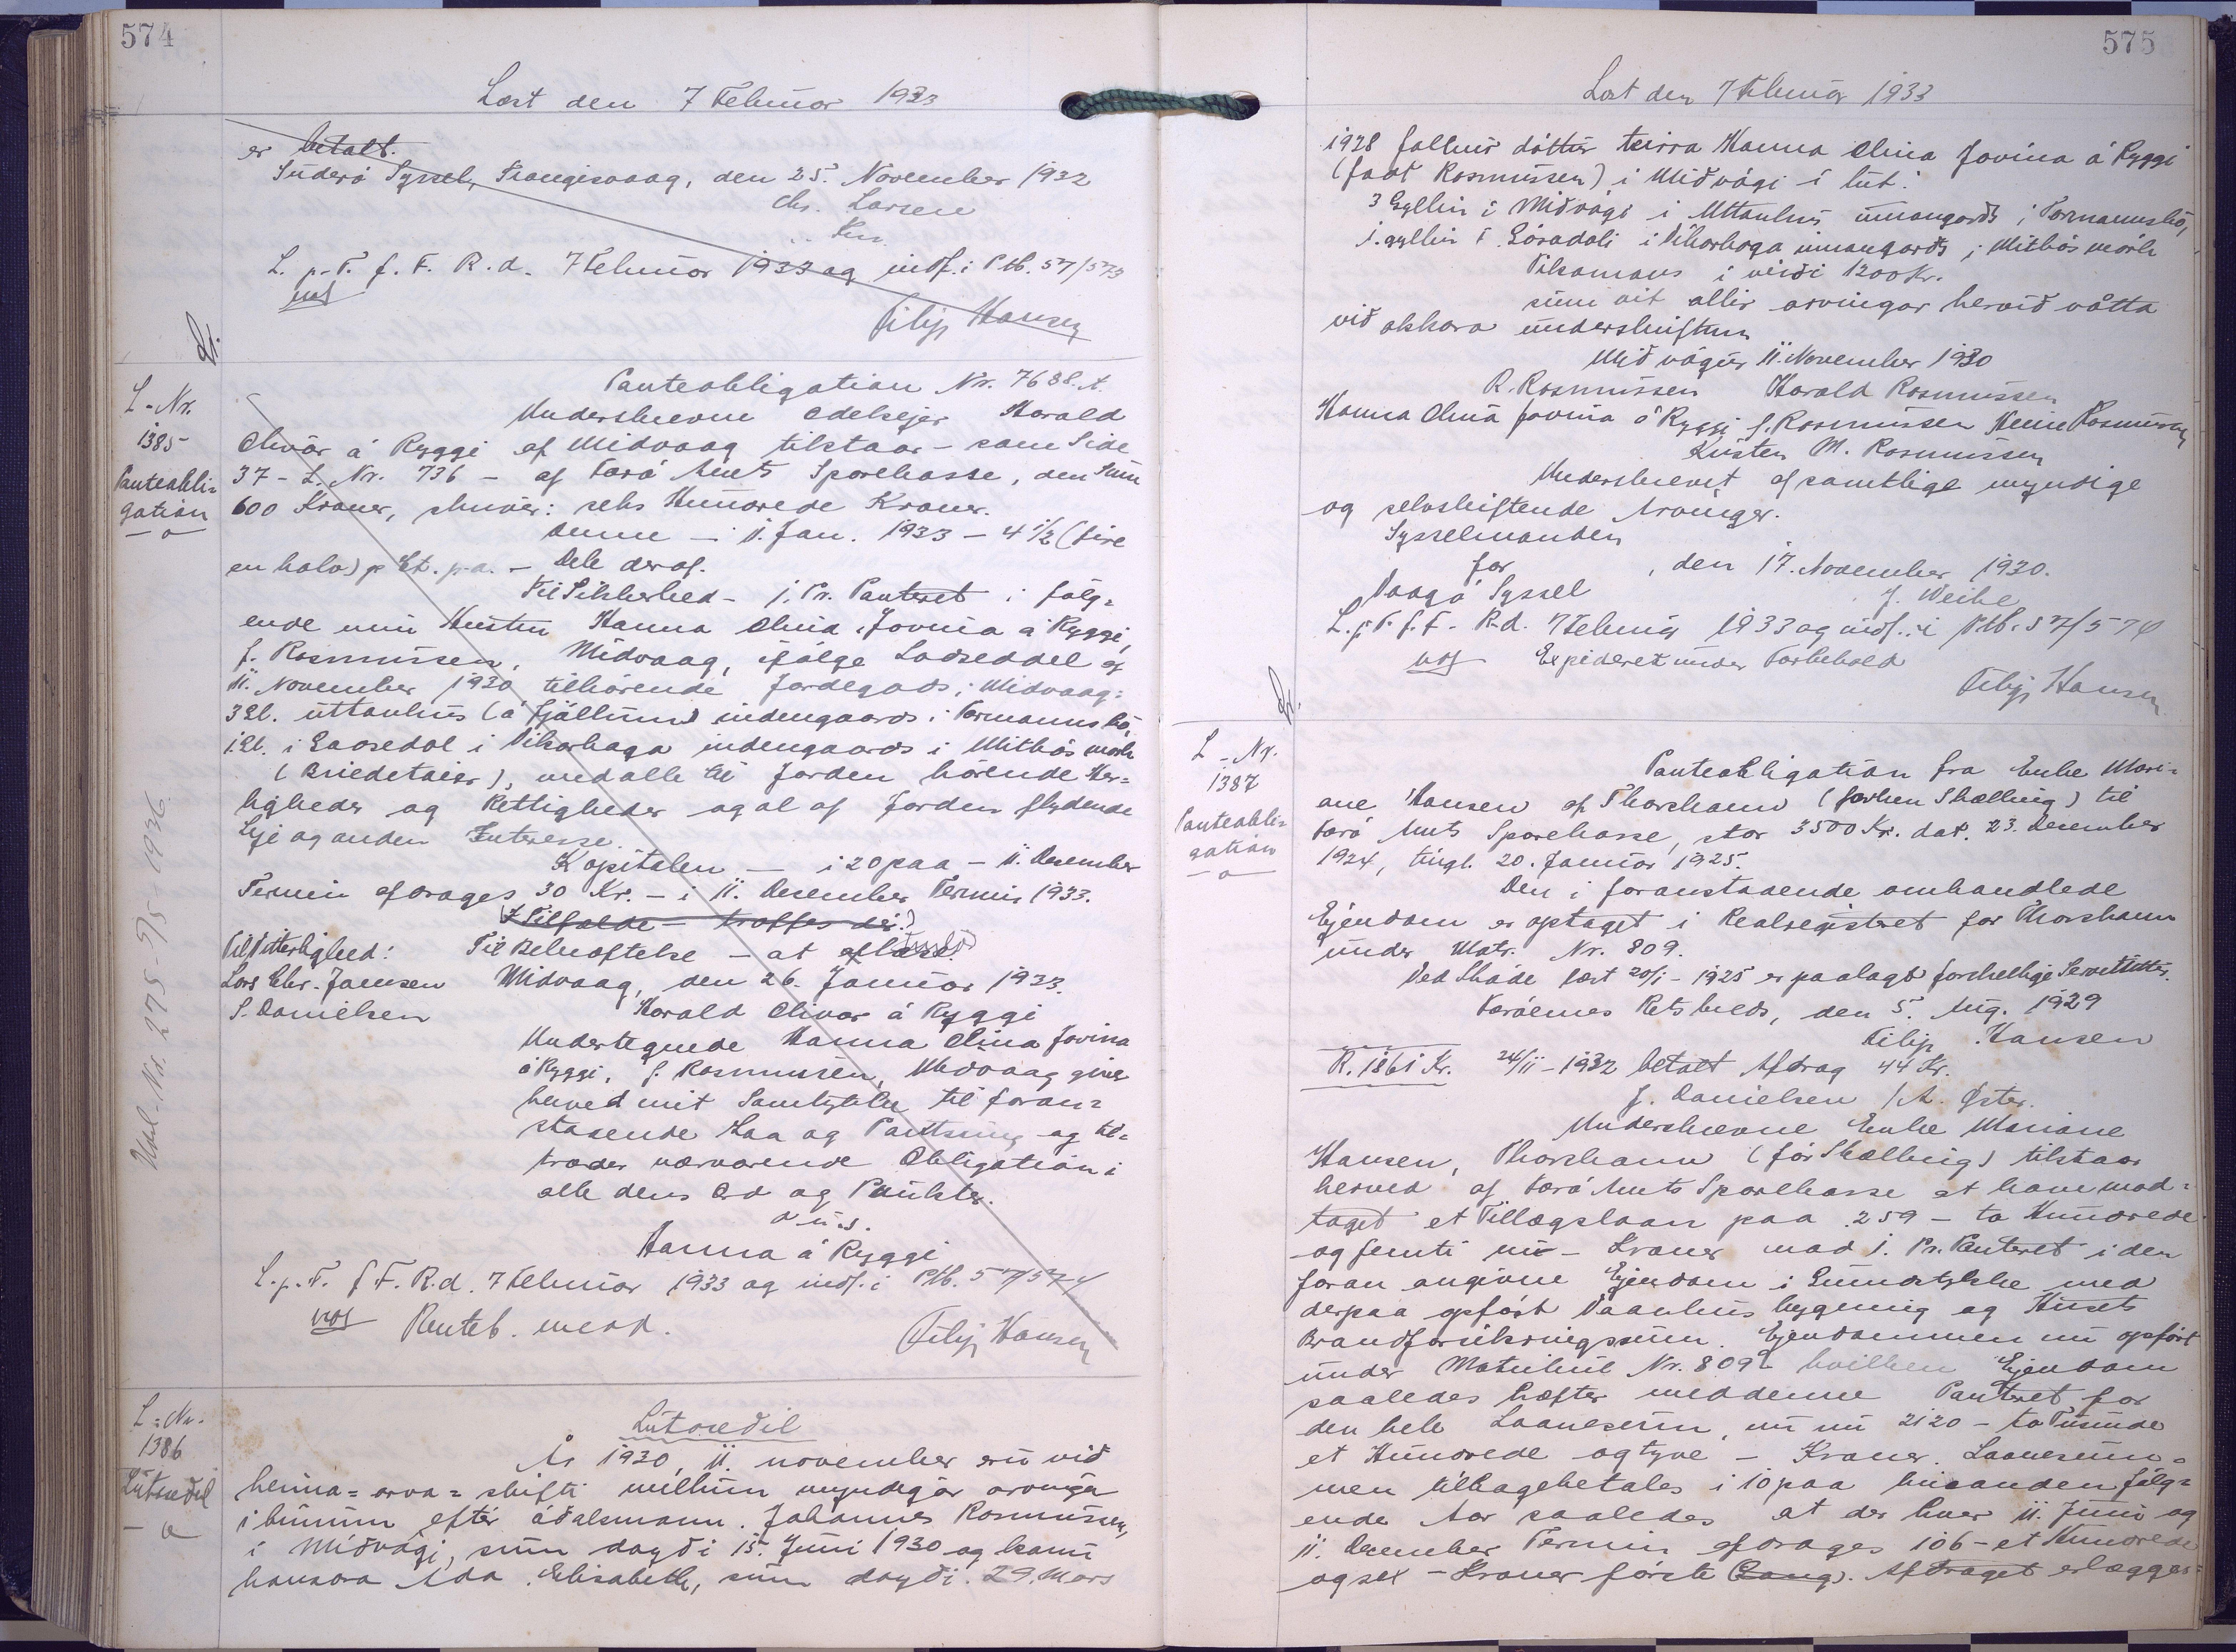 574
Læst den 7 Februar 1933
er betalt.
Suderö Syssel, Trangisvaag, den 25. November 1932
Chr. Larsen
L. p. T. f. F. R. d. 7 Februar 1933 og indf. i Ptb. 57/573
Filip Hansen
L-Nr.
1385
Panteobli-
gation
Panteobligation Nr. 7688. A.
Underskrevne Odelsejer Harald
Olivar á Ryggi af Midvaag tilstaar - som Side
37 - L. Nr. 736 - af Færö Amts Sparekasse, den Sum
600 Kroner, skriver: seks Hundrede Kroner.
Denne - 1. Jan. 1933 - 4 1/2 (fire
en halv) p Ct. p.a. - Dele deraf.
Til Sikkerhed - 1. Pr. Panteret i følg-
ende min Hustru Hanna Olina Jovina á Ryggi,
f. Rasmussen, Midvaag, ifølge Lodseddel af
11. November 1930 tilhørende Jordegods i Midvaag:
3 Gl. uttanhus (á Fjøllum) indengaards i Formannsbø,
1 Gl. i Laasedal i Vikarhaga indengaards i Mitbøsmørk
(Briedetaier), med alle til Jorden hørende Her-
ligheder og Rettigheder og al af Jorden flydende
Leje og anden Interesse.
Kapitalen - i 20 paa - 11. December
Termin afdrages 30 Kr. - i 11. December Termin 1933.
(I Tilfælde - træffes der.)
Til Vitterlighed: Til Bekræftelse - at aflæse.
Lars Chr. Jamsen Midvaag, den 26. Januar 1933.
S. Danielsen Harald Olivar á Ryggi
Undertegnede Hanna Olina Jovina
á Ryggi, f. Rasmussen, Midvaag giver
herved mit Samtykke til foran-
staaende Laa og Pantsning og til-
træder nærværende Obligation i
alle dens Ord og Punkter.
D. u. s.
Hanna á Ryggi
L. p. T. f F. R. d. 7 Februar 1933 og indf. i Ptb. 57/574
Renteb. medd.
Filip Hansen
Udl. Nr. 275-95-1936.
L-Nr.
1386
Lutsedil
Lutsedil
Ár 1930, 11. november eru við
henna-arva-skifti millum myndigar arvingar
i búnum eftir óðalsmann Johannes Rasmussen,
i Miðvági, sum doyði 15. Juni 1930 og konu
hansara Ada Elisabeth, sum doyði 29. Mars
575
Læst den 7 Februar 1933
1928 fallnir dóttur teirra Hanna Olina Jovina á Ryggi
(født Rasmussen) i Miðvági i lut:
3 Gyllin i Miðvági i Uttanhus innangards i Formannsbø,
1. gyllin i Lóradali i Vikarhaga innangards i Mitbøsmørk
Tilsamans i virði 1200 Kr.
sum vit allir arvingar hervið vátta
við okkara underskriftum
Miðvágur 11. November 1930
R. Rasmussen Harald Rasmussen
Hanna Olina Jovina á Ryggi f. Rasmussen Heine Rasmussen
Kristen M. Rasmussen
Underskrevet af samtlige myndige
og selvskiftende Arvinger.
Sysselmanden
for , den 17. November 1930.
Vaagø Syssel J. Weihe
L. p T. f. F. R. d. 7 Februar 1933 og indf. i Ptb. 57/574
Expederet under Forbehold
Filip Hansen
L-Nr.
1387
Panteobli-
gation
Panteobligation fra Enke Mari-
ane Hansen af Thorshavn (forhen Skælling) til
Færö Amts Sparekasse, stor 3500 Kr. dat. 23. December
1924, tingl. 20. Januar 1925.
Den i foranstaaende omhandlede
Ejendom er optaget i Realregistret for Thorshavn
under Matr. Nr. 809.
Ved Skøde læst 20/1-1925 er paalagt forskellige Servitutter.
Færøernes Retskreds, den 5. Aug. 1929
Filip Hansen
R. 1861 Kr. 24/11-1932 betalt Afdrag 44 Kr.
J. Danielsen / A. Øster.
Underskrevne Enke Mariane
Hansen, Thorshavn (før Skælling) tilstaar
herved af Færö Amts Sparekasse at have mod-
taget et Tillægslaan paa 259 - to Hundrede
og femti ni - Kroner mod 1. Pr. Panteret i den
foran angivne Ejendom i Grundstykke med
derpaa opført Vaanhusbygning og Husets
Brandforsikringssum. Ejendommen nu opført
under Matrikul Nr. 809a hvilken Ejendom
saaledes hæfter med denne Panteret for
den hele Laanesum, nu 2120 - to Tusinde
et Hundrede og tyve - Kroner. Laanesum-
men tilbagebetales i 10 paa hinanden følg-
ende Aar saaledes at der hver 11. Juni og
11. December Termin afdrages 106 - et Hundrede
og sex - Kroner første Gang). Afdraget erlægges